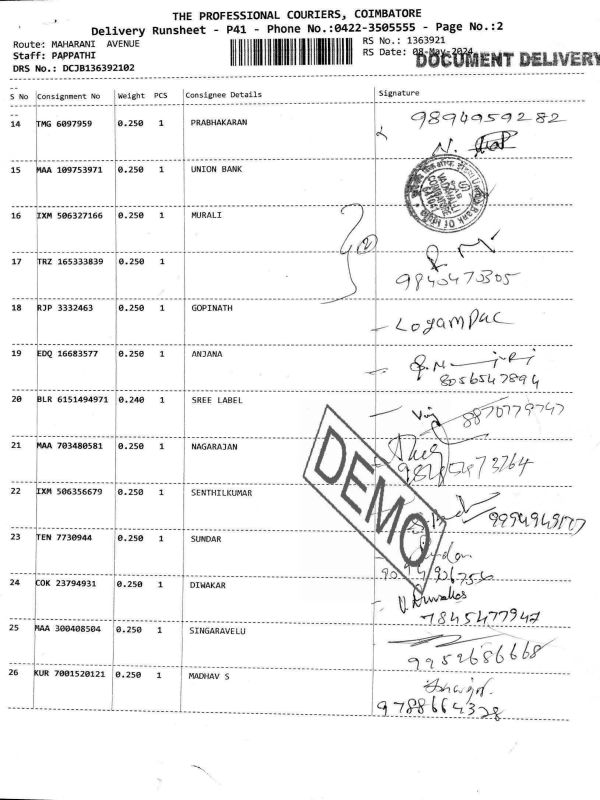 THE PROFESSIONAL COURIERS, COIMBATORE
Delivery Runsheet - P41 - Phone No.:0422-3505555 - Page No.:2
Route: MAHARANI AVENUE RS No.: 1363921
Staff: PAPPATHI RS Date: 08-May-2024
DOCUMENT DELIVERY
DRS No.: DCJB136392102
S No Consignment No Weight PCS Consignee Details Signature
14 TMG 6097959 0.250 1 PRABHAKARAN 9894959282
15 MAA 109753971 0.250 1 UNION BANK
16 IXM 506327166 0.250 1 MURALI
17 TRZ 165333839 0.250 1 9840473305
18 RJP 3332463 0.250 1 GOPINATH - Logampac
19 EDQ 16683577 0.250 1 ANJANA
8056547894
20 BLR 6151494971 0.240 1 SREE LABEL 8870779747
21 MAA 703480581 0.250 1 NAGARAJAN
22 IXM 506356679 0.250 1 SENTHILKUMAR
23 TEN 7730944 0.250 1 SUNDAR
DEMO
24 COK 23794931 0.250 1 DIWAKAR
7845477947
25 MAA 300408504 0.250 1 SINGARAVELU
9952686668
26 KUR 7001520121 0.250 1 MADHAV S
9788664328